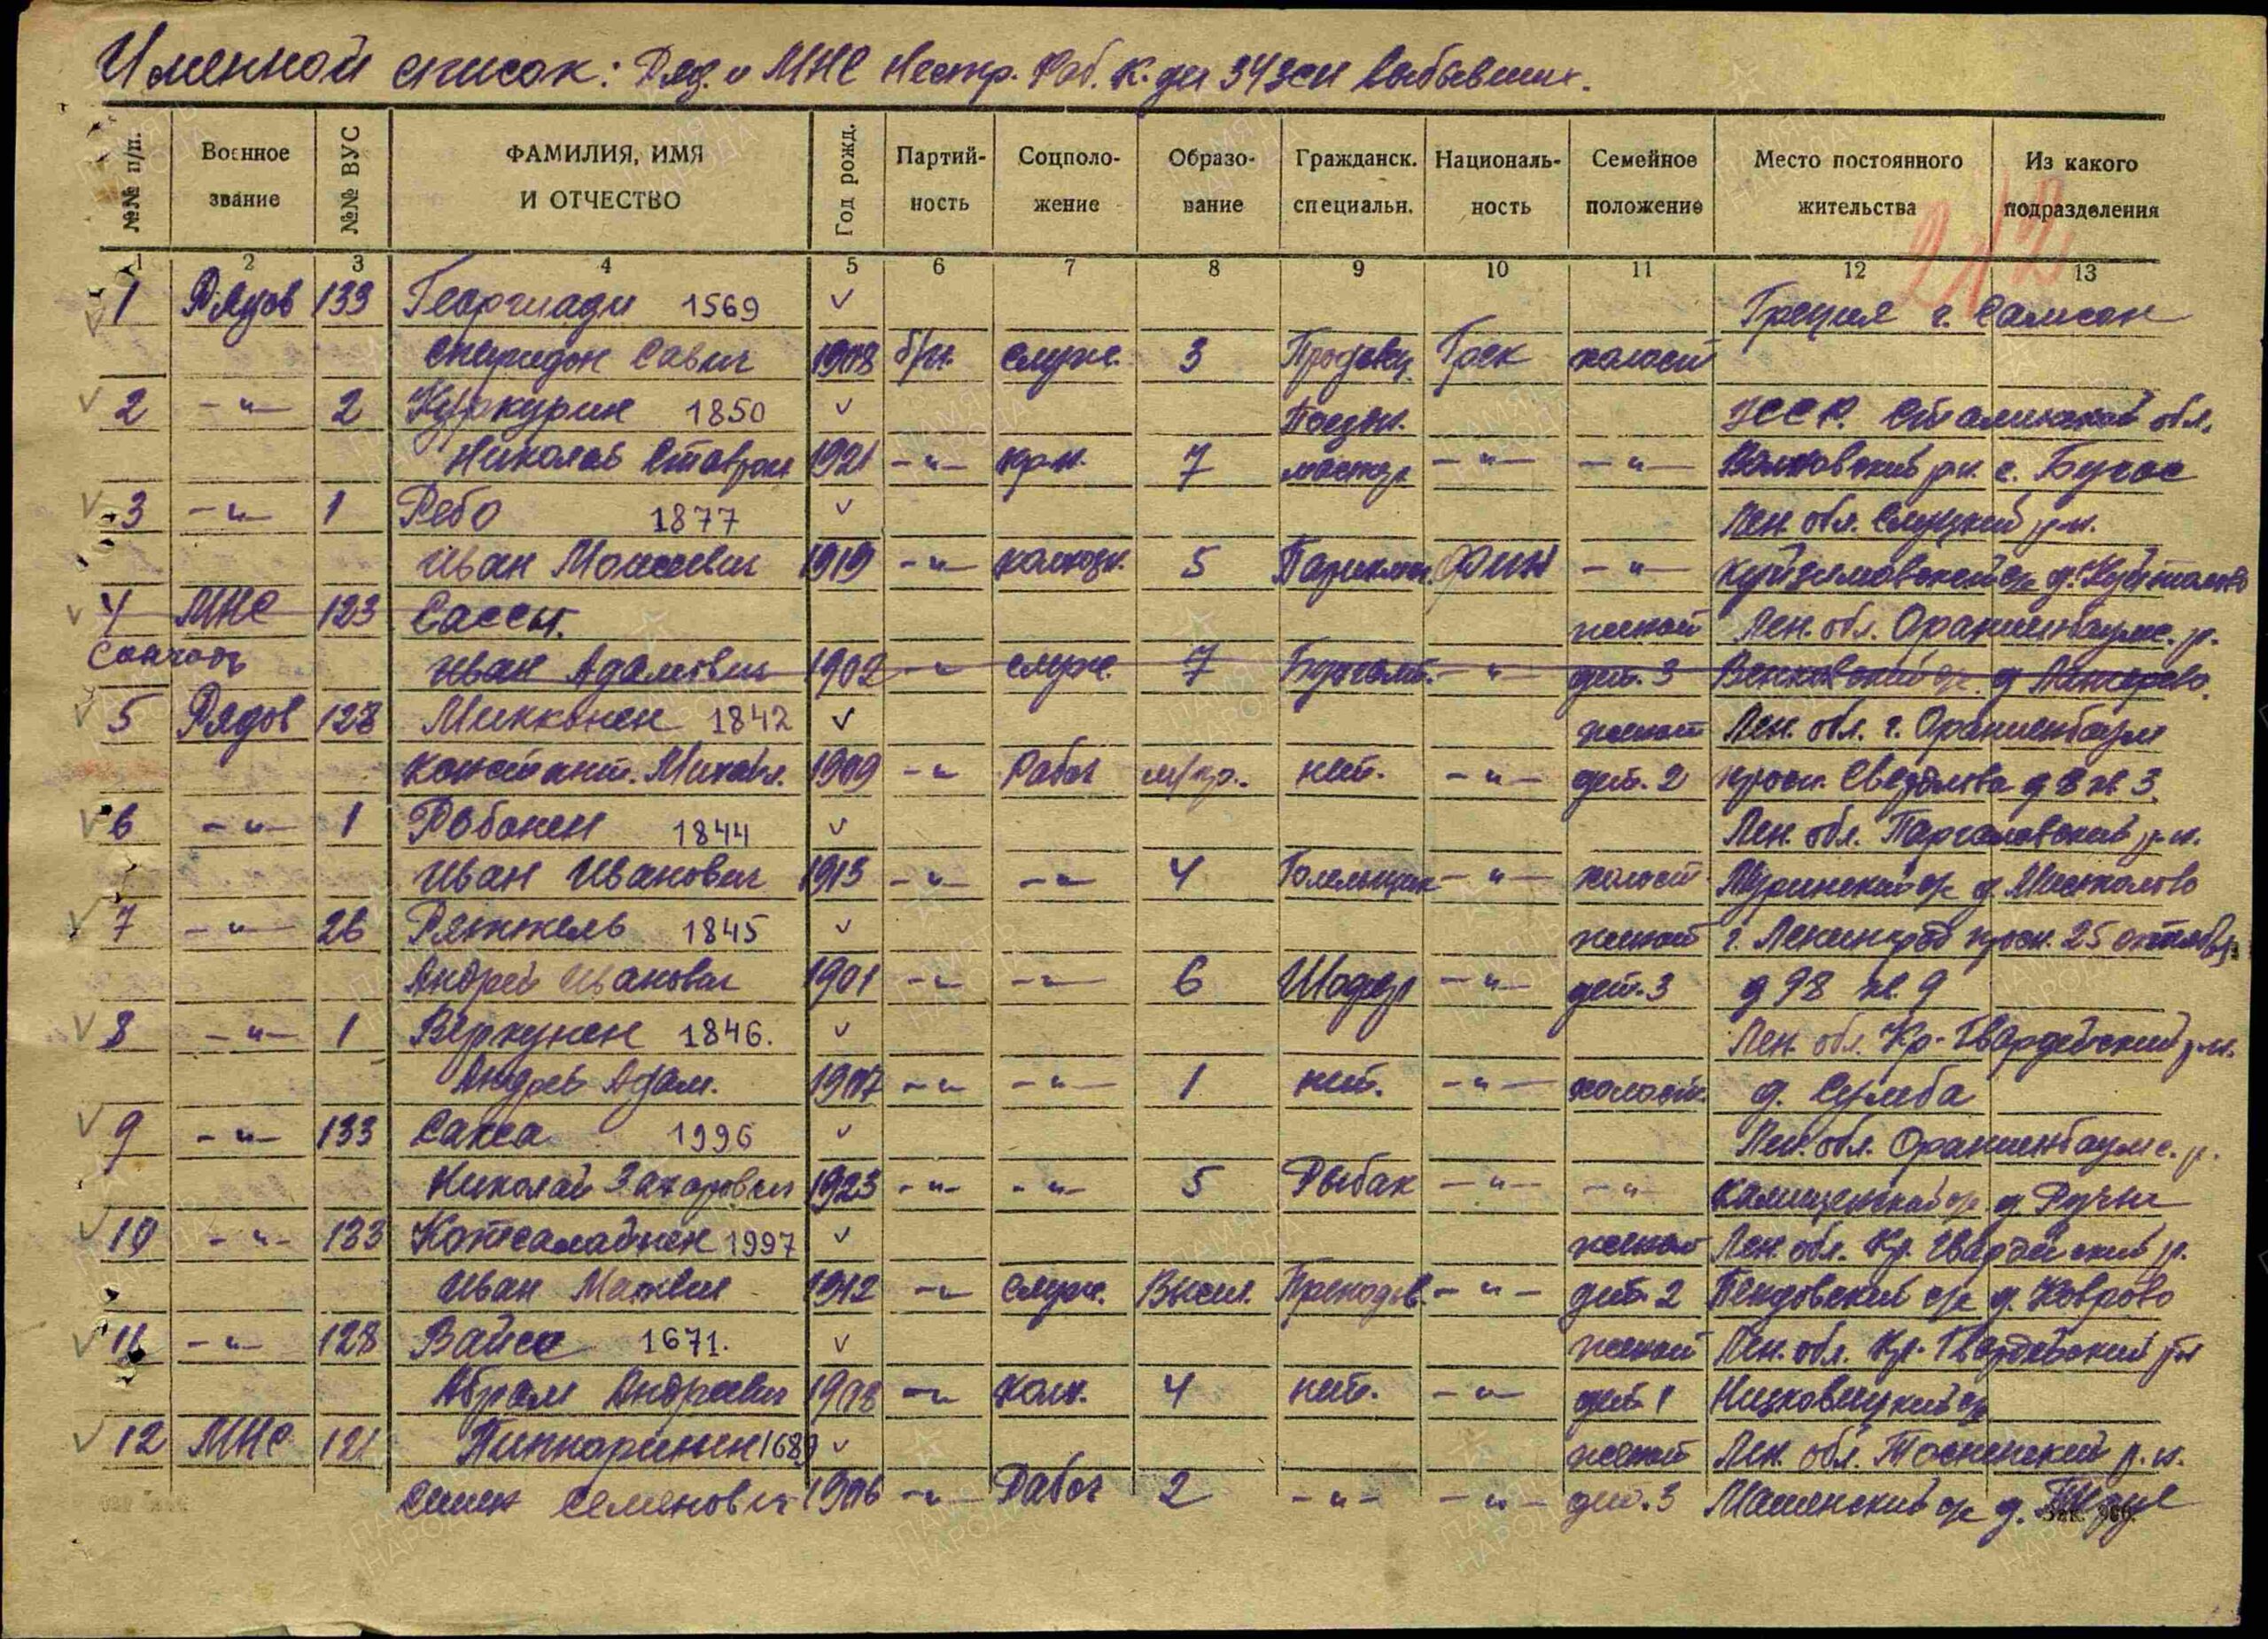 Именной список: Ряд. и МНС Нестр. Раб. К. ды 34 зсп выбывших.
№№ п/п. Военное звание №№ ВУС ФАМИЛИЯ, ИМЯ И ОТЧЕСТВО Год рожд. Партий-ность Соцполо-жение Образо-вание Гражданск. специальн. Националь-ность Семейное положение Место постоянного жительства Из какого подразделения
1 2 3 4 5 6 7 8 9 10 11 12 13
212
1 Рядов 133 Георгиади 1569 Греция г. Самсон
Спиридон Савич 1908 б/п. служ. 3 Продавец Грек холост
2 -"- 2 Куркурин 1850 УССР. Сталинской обл.
Николай Ставрон 1921 -"- 7 мастер -"- -"- с. Бугас
3 -"- 1 Ребо 1877 Лен. обл. Слуцкий р-н.
Иван Моисеевич 1919 -"- колхозн. 5 Парикмах. финн -"-
4 МНС 123 Сассы. женат Лен. обл. Ораниенбаумс. р.
Иван Адамович 1902 -"- служ. 7 Бухгалт. -"- дет. 3
5 Рядов 128 Микконен 1842 женат Лен. обл. г. Ораниенбаум
Констант. Михайл. 1909 -"- Рабоч м/гр. нет. -"- дет. 2 просп. Свердлова д 8 кв 3
6 -"- 1 Робонен 1844 Лен. обл. Парголовский р-н.
Иван Иванович 1913 -"- -"- 4 -"- холост Муринский с/с д. Мистолово
7 -"- 26 Ряттель 1845 женат г. Ленинград просп. 25 октября
Андрей Иванович 1901 -"- -"- 6 Шофер -"- дет. 3 д 98 кв. 9
8 -"- 1 Веркунен 1846. Лен. обл. Кр-Гвардейский р-н.
Андрей Адам. 1907 -"- -"- 1 нет. -"- холост д.
9 -"- 133 Сакса 1996 Лен. обл. Ораниенбаумс. р.
Николай Захарович 1923 -"- -"- 5 Рыбак -"- -"- с/с д. Ручьи
10 -"- 133 Котсалайнен 1997 женат Лен. обл. Кр. Гвардейский р.
Иван Матвеи 1912 -"- служ. Высш. Преподав. -"- дет. 2 с/с д. Коврово
11 -"- 128 Вайсе 1671. женат Лен. обл. Кр. Гвардейский р-н
Абрам Андреевич 1908 -"- колх. 4 нет. -"- дет. 1
12 МНС 121 1689 женат Лен. обл. Тосненский р.н.
Семен Семенович 1906 -"- Рабоч 2 -"- -"- дет. 3 с/с д.